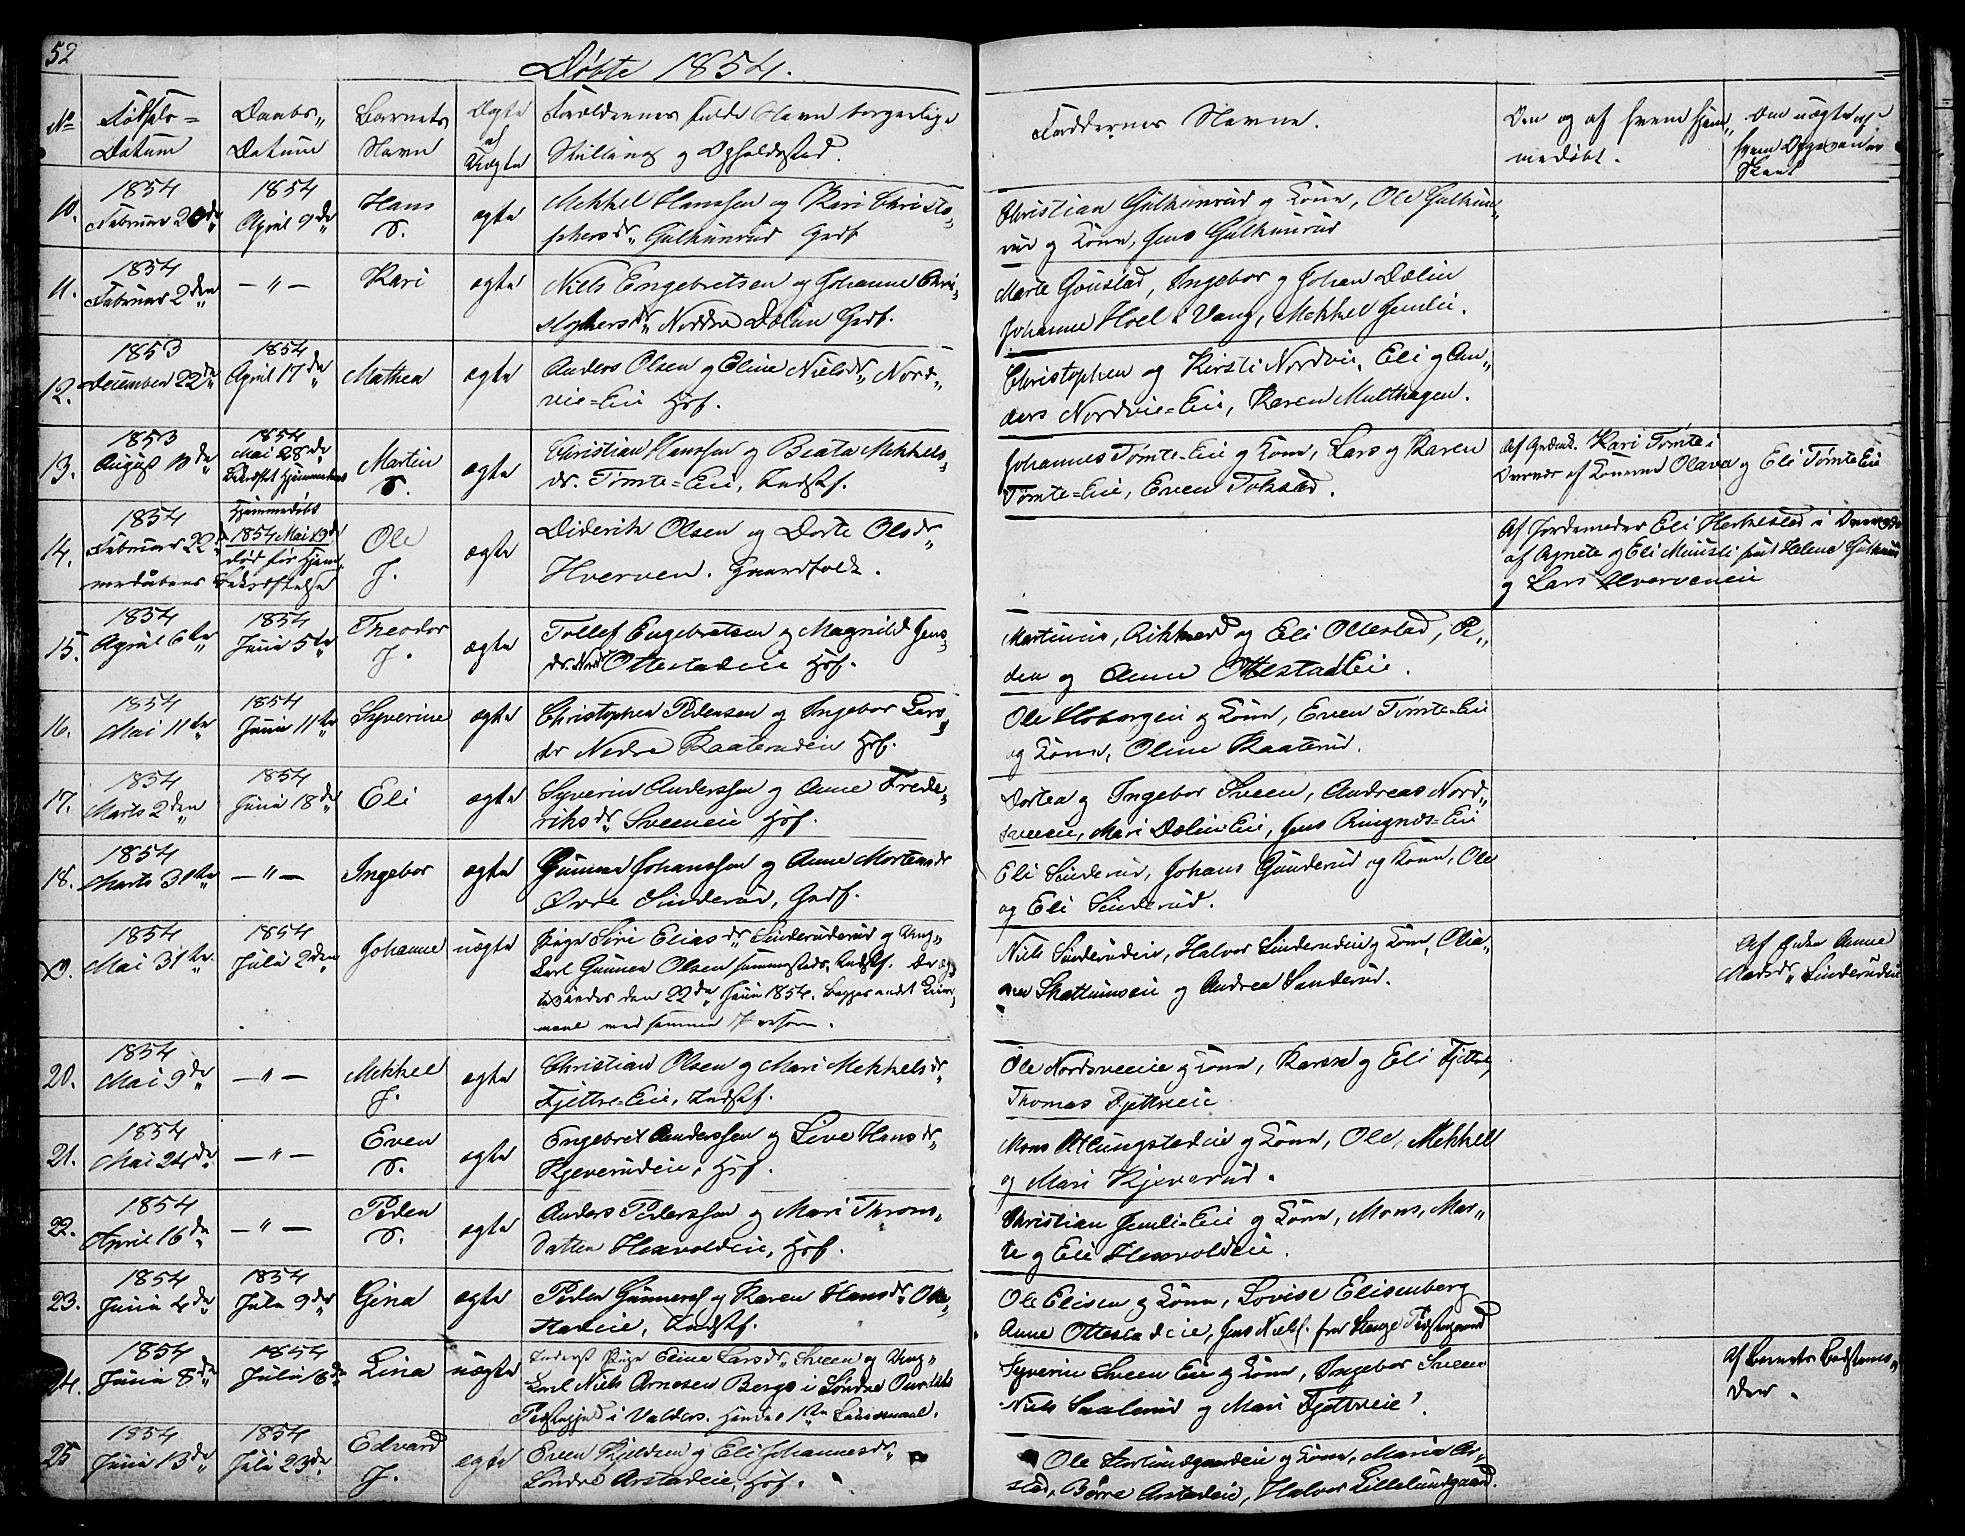 52
Døbte 1854.
No
Fødsels-
Datum
Daabs-
Datum
Barnets
Navn
Ægte
el
Uægte
Forældrenes fulde Navn borgerlige
Stilling og Opholdssted.
Faddernes Navne.
Om og af hvem hjem-
medøbt.
10.
1854
Februar 20de
1854
April 9de
Hans
T.
ægte
Mekkel Hanssen og Kari Christo-
phersdr Gulhunrud Grdf
Christian Gulhunrud og Kone, Ole Gulhun-
rud og Kone, Jens Gulhunrud
11.
1854
Februar 2den
— " —
Kari
ægte
Niels Engebretsen og Johanne Chri-
stophersdr Nordre Dælin Grdf.
Marte Gonstad, Ingebor og Johan Dælin
Johanne Hoel i Vang, Mekkel Jemli.
12.
1853
December 22de
1854
April 17de
Mathea
ægte
Anders Olsen og Eline Nielsdr Nord-
vie-Eie Hsf.
Christopher og Kirsti Nordvie, Eli og An-
ders Nordvie-Eie, Karen Multhagen.
13.
1853
August 13de
1854
Mai 28de
Martin
T.
ægte
Christian Hanssen og Beata Mekkels-
dr. Tømte-Eie, Indstf.
Johannes Tømte-Eie og Kone, Lars og Karen
Tømte-Eie, Even Tokstad.
Kari Tømte
Olava og Eli Tømte Eie
14.
1854
Februar 22
medøbens
Hjemmedøbt
1854 Mai 19de
død før Hjem-
Bekræftelse
Ole
J.
ægte
Diderik Olsen og Dorte Olsdr
Hverven. Gaardfolk.
Af Jordemoder Eli Herkestad
af Agnete og Eli
og Lars Hverveneie
15.
1854
April 6te
1854
Juni 5te
Theodor
J.
ægte
Tollef Engebretsen og Magnild Jens-
dr. Ottestadeie Hsf.
Martinus, Rikhard og Eli Ottestad, Pe-
der og Anne OttestadEie.
16.
1854
Mai 11te
1854
Juni 11te
Syverine
ægte
Christopher Pedersen og Ingebor Lars-
dr Nedre Kaaterudeie Hsf.
Ole Hobergeie og Kone, Even Tømte-Eie
og Kone, Oline Kaaterud.
17.
1854
Marts 2den
1854
Juni 18de
Eli
ægte
Syverin Anderssen og Anne Frede-
riksdr Sveeneie Hsf.
Dortea og Ingebor Sveen, Andreas Nord-
sveeneie, Mari DælinEie, Jens Ringnes-Eie
18.
1854
Marts 31te
— " —
Ingebor
ægte
Gunner Johanssen og Anne Mortensdr
Øvre Sinderud, Grdf.
Eli Sinderud, Johans Gunderud og Kone, Ole
og Eli Sinderud.
19.
1854
Mai 31te
1854
Juli 2den
Johanne
uægte
Pige Siri Eliasdr Sinderuderud og Ung-
karl Gunner Olsen sammesteds, Indstf.
den 22de Juni 1854. Begges andet Leier-
maal med samme Person.
Niels Sinderudeie, Halvor Sinderudeie og Kone, Olia-
ne Skattumseie og Andrea Sanderud.
Af Enke Anne
Madsdr Sinderudeie
20.
1854
Mai 9de
— " —
Mekkel
J.
ægte
Christian Olsen og Mari Mekkelsdr
Fjettre-Eie, Indstf.
Ole Nordsveeie og Kone, Karen og Eli Fjettre,
Thomas Fjettreeie
21.
1854
Mai 24de
— " —
Even
T.
ægte
Engebret Anderssen og Live Hansdr
Kjeverudeie, Hsf.
Mons Atlungstadeie og Kone, Ole, Mekkel
og Mari Kjeverud.
22.
1854
April 16de
— " —
Peder
T.
ægte
Anders Pederssen og Mari Throns-
datter Hexvoldeie, Hsf.
Christian Jemli-Eie og Kone, Mons, Mar-
te og Eli Hexvoldeie.
23.
1854
Juni 4de
1854
Juli 9de
Gina
ægte
Peder Gunners. og Karen Hansdr Otte-
stadeie, Indstf.
Ole Elisen og Kone, Lovise Elisenberg
Anne Ottestadeie, Jens Niels. fra Stange Præstegaard
24.
1854
Juni 8de
1854
Juli 16de
Lina
uægte
Pige Eline Larsdr Sveen og Ung-
karl Niels Arnesen Berge i Søndre Ourdahls
Præstegjeld i Valders. Hendes 1ste Leiermaal.
Syverin Sveen Eie og Kone, Ingebor Sveen
Niels Saalerud og Mari Fjettreeie.
Af Barnets Bedstemo-
der.
25
1854
Juni 13de
1854
Juli 23de
Edvard
J.
ægte
Even Kjeldsen og Eli Johannesdr
Søndre Arstadeie, Hsf.
Ole Storlundgaardeie og Kone, Maria Ar-
stad, Børre Arstadeie, Halvor Lillelundgaard.